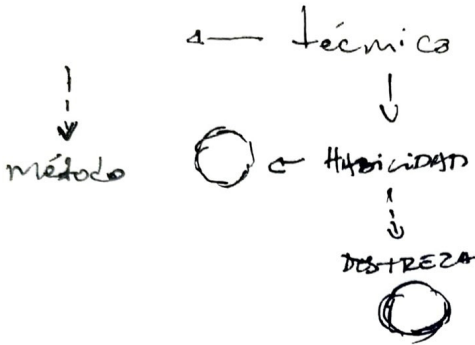 técnica
método
HABILIDAD
DESTREZA